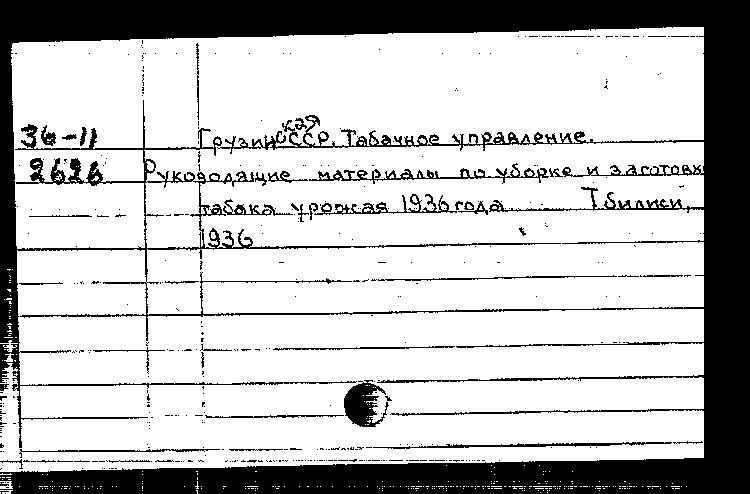 36-11 Грузинская ССР. Табачное управление.
2626 Руководящие материалы по уборке и заготовк
табака урожая 1936 года Тбилиси,
1936